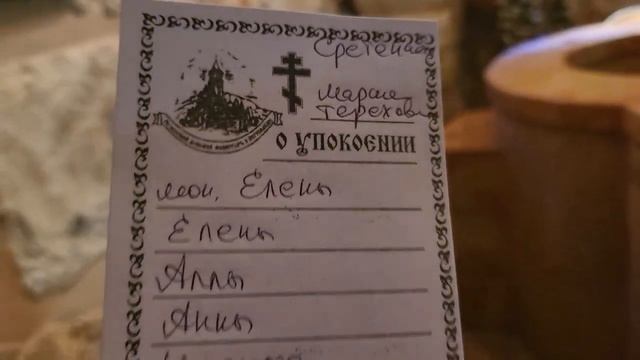 Сретенск
Марии
Терехов
О УПОКОЕНИИ
мон. Елены
Елены
Аллы
Анны